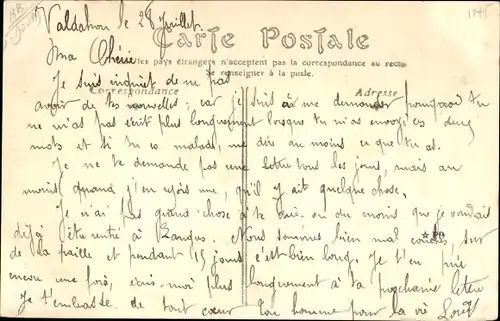 Valdahon le 28 Juillet
Carte Postale
Ma Chérie
les pays étrangers n'acceptent pas la correspondance au recto
Se renseigner à la poste.
Je suis inquiet de ne pas
Correspondance
Adresse
avoir de tes nouvelles; car je suis à me demander pourquoi tu
ne m'as pas écrit plus longuement lorsque tu m'as envoyé ces deux
mots et si tu es malade, me dire au moins ce que tu as.
Je ne te demande pas une lettre tous les jours, mais au
moins quand j'en reçois une, qu'il y ait quelque chose.
Je n'ai pas grand chose à te dire ou du moins que je voudrais
déjà être rentré à. Nous sommes bien mal couchés, sur
de la paille et pendant 15 jours c'est bien long. Je t'en prie
encore une fois, écris-moi plus longuement à ta prochaine lettre
Je t'embrasse de tout coeur ton homme pour la vie